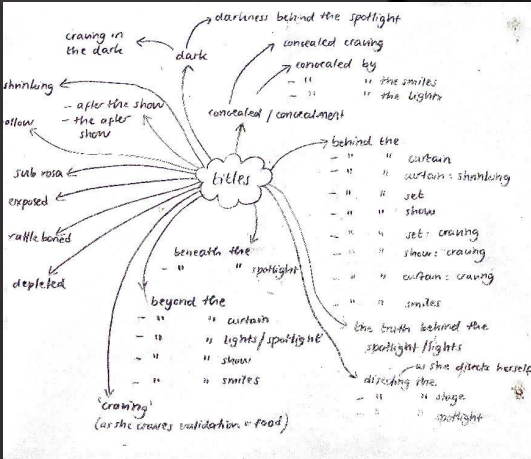 darkness behind the spotlight
craving in
the dark
dark
concealed craving
concealed by
- " " the smiles
- " " the lights
concealed / concealment
shrinking
- after the show
- the after
show
ollow
sub rosa
exposed
rattle boned
depleted
titles
behind the
- " " curtain
- " " curtain: shrinking
- " " set
- " " show
- " " set: craving
- " " show: craving
- " " curtain: craving
- " " smiles
beneath the
- " " spotlight
beyond the
- " " curtain
- " " lights/spotlight
- " " show
- " " smiles
the truth behind the
spotlight/lights
as she directs herself
directing the
- " " stage
- " " spotlight
'craving'
(as she craves validation + food)